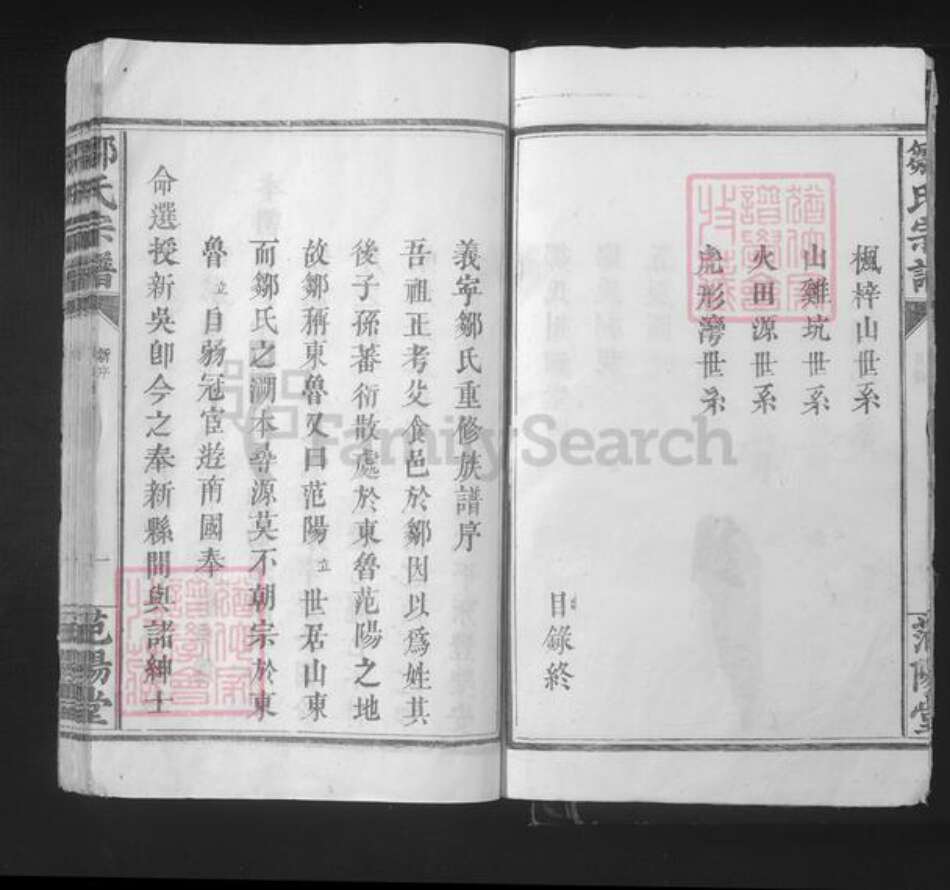 鄒氏宗譜
楓梓山世系
山雞坑世系
火田源世系
虎形灣世系
目錄終
范陽堂
義寧鄒氏重修族譜序
吾祖正考父食邑於鄒因以爲姓其
後子孫蕃衍散處於東魯范陽之地
故鄒稱東魯又曰范陽立世居山東
而鄒氏之溯本尋源莫不朝宗於東
魯立自弱冠宦遊南國奉
命選授新吳卽今之奉新縣間與諸紳士
鄒氏宗譜
新序
一
范陽堂
FamilySearch